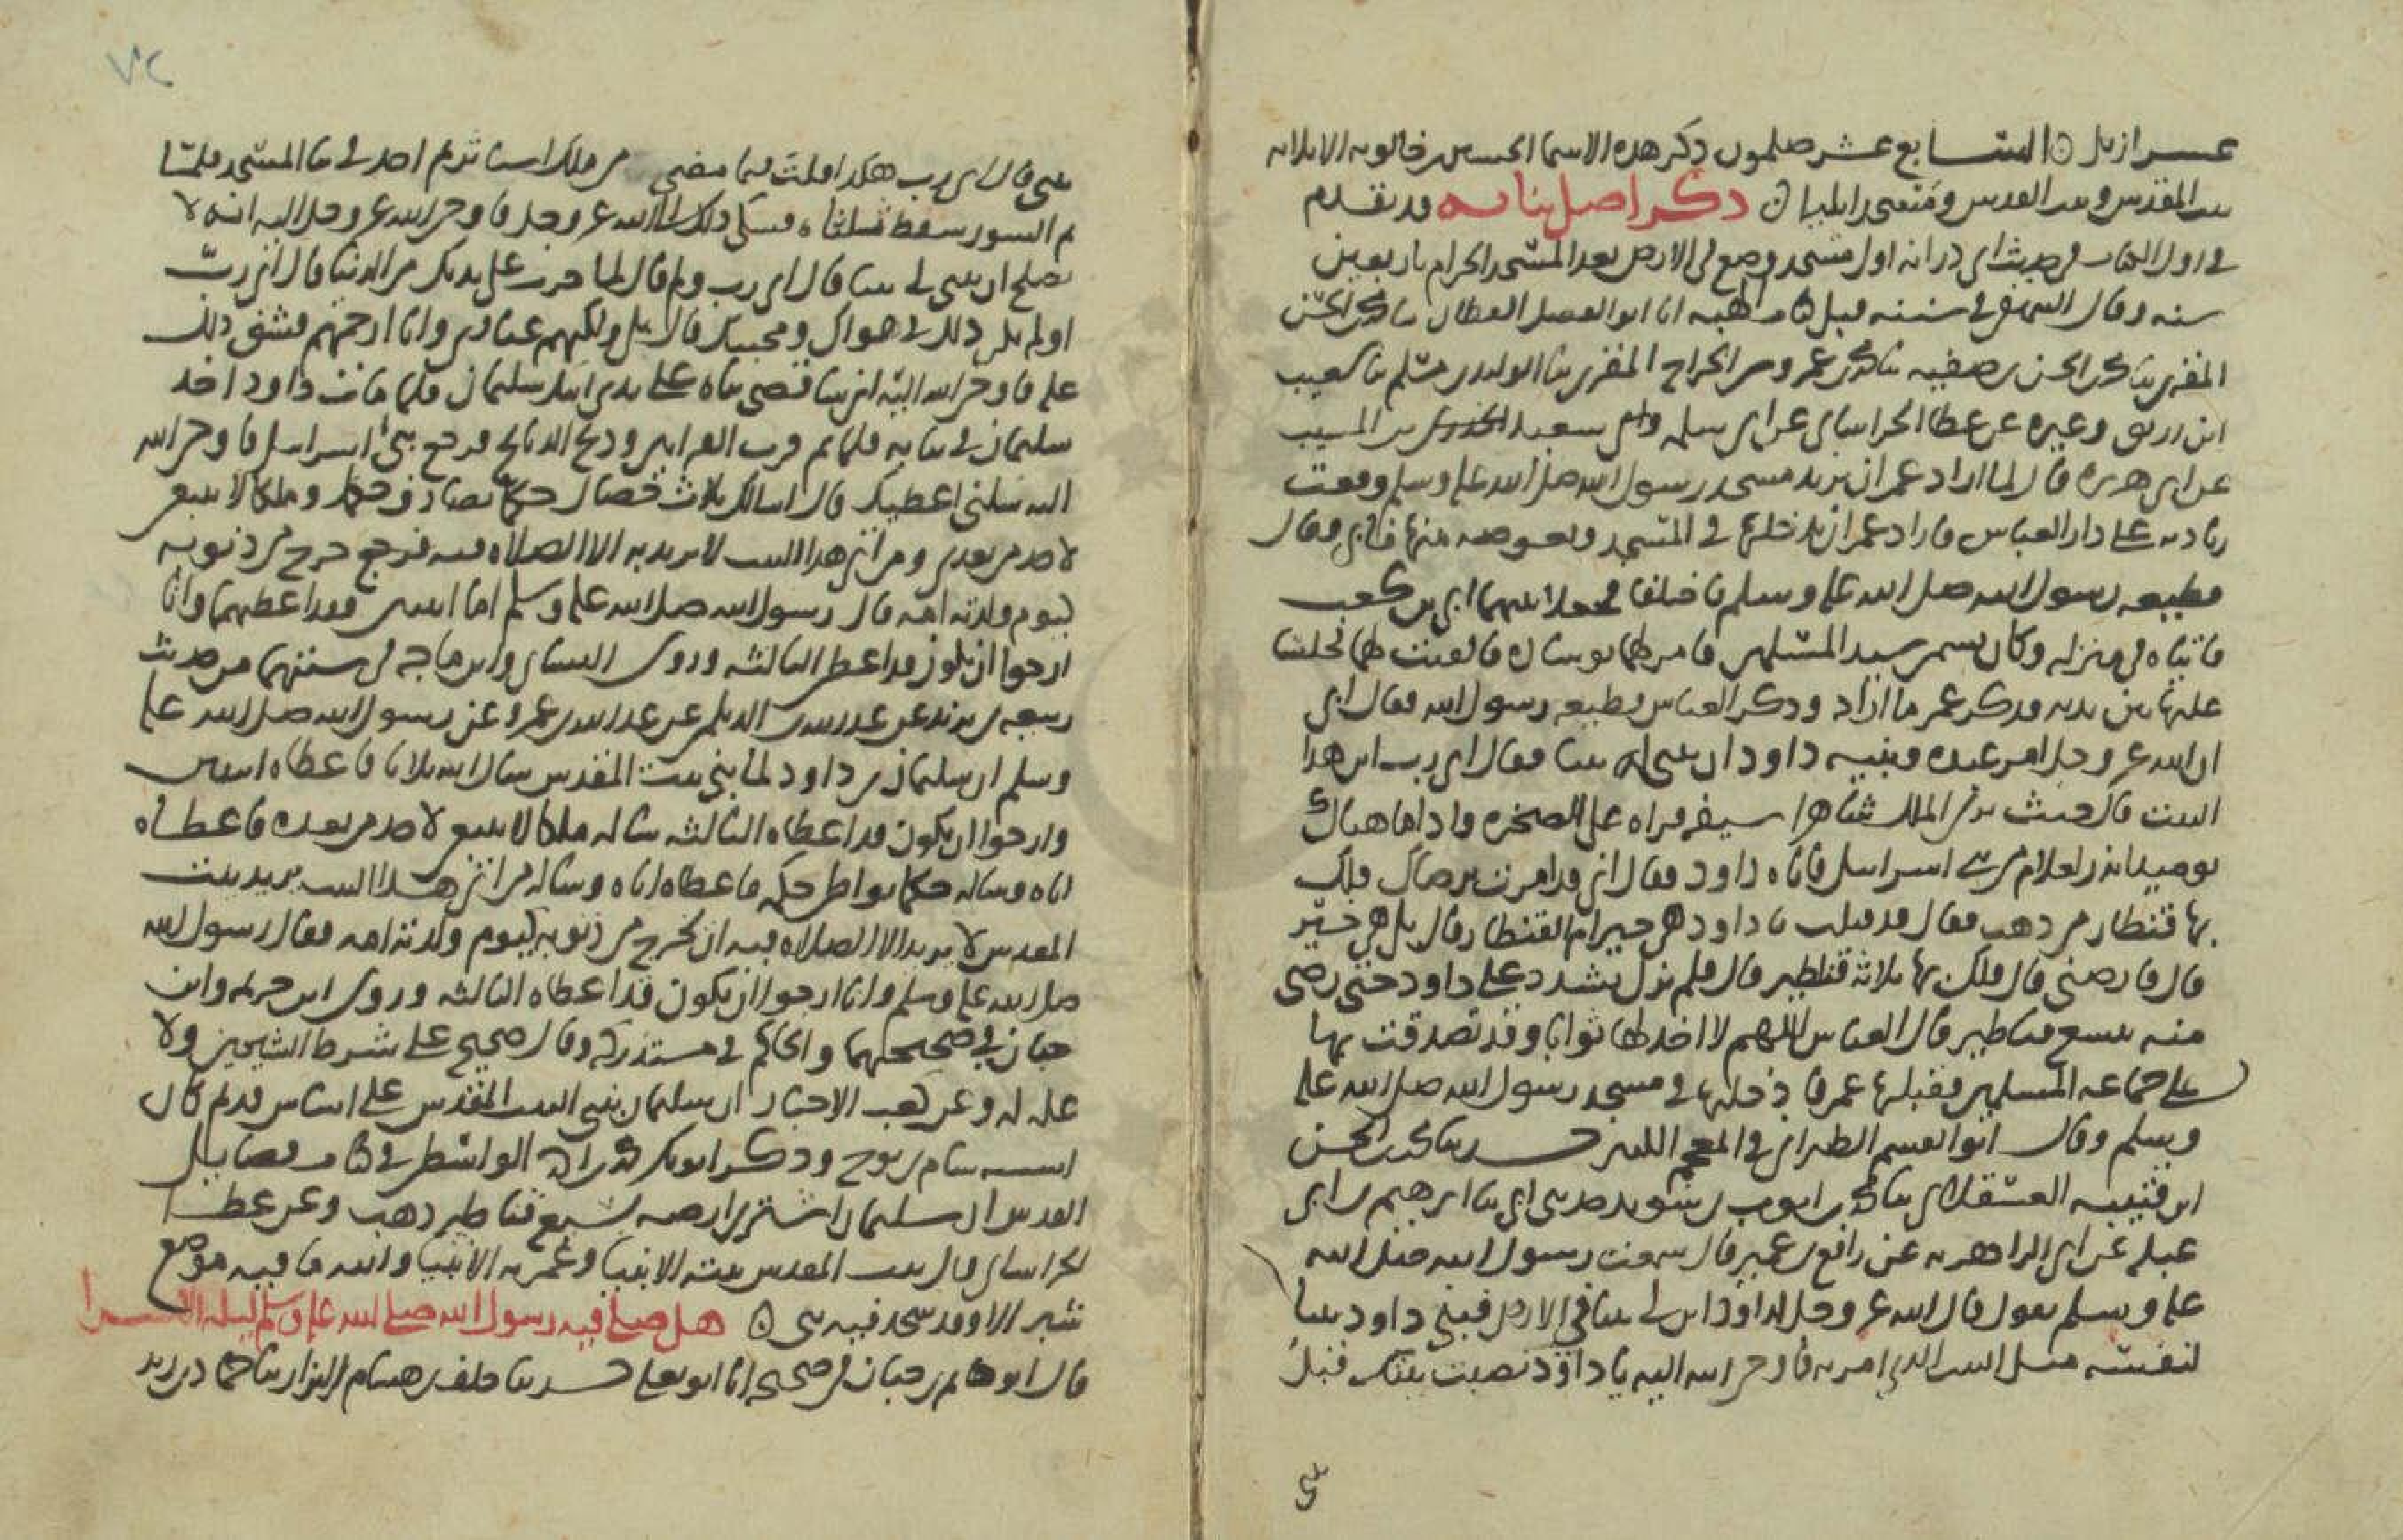 عسرازيل ۞ السابع عشر صلمون ذكر هذه الاسما الحسين بن خالويه الا بلايه
بيت المقدس وبيت القدس ومسجد ايليا ۞ ذكر اصل بنايه قد تقدم
في اول الكتاب في حديث ابي ذر انه اول مسجد وضع في الارض بعد المسجد الحرام باربعين
سنه وقال البيهقي في سننه قبل كتاب الهبه انا ابو الحسين القطان بنا محمد بن الحسن
المقري بنا محمد بن الحسن بن قتيبه بنا محمد بن عمرو بن الجراح المقري بنا الوليد بن مسلم بنا شعيب
ابن زريق وغيره عن عطا الخراساني عن ابي سلمه وابي سعيد بن المسيب
عن ابي هريره قال لما اراد عمر ان يزيد في مسجد رسول الله صلى الله عليه وسلم وقعت
زيادته على دار العباس فاراد عمر ان يدخلها في المسجد ويعوضه منها فابى وقال
قطيعه رسول الله صلى الله عليه وسلم فاختلفا فجعلا بينهما ابي بن كعب
فاتياه في منزله وكان يسمى سيد المسلمين فامر لهما بوساده فالقيت لهما فجلسا
عليها بين يديه فذكر عمر ما اراد وذكر العباس قطيعه رسول الله فقال ابي
ان الله عز وجل امر عبده ونبيه داود ان يبني له بيتا فقال اي رب اين هذا
البيت قال حيث ترى الملك شاهرا سيفه فراه على الصخره واذا ما هناك
يوميذ اندر لغلام من بني اسرايل فاتاه داود فقال اني قد امرت ... فلك
بها قنطار من ذهب فقال قد قبلت يا داود هي خير ام القنطار قال بل هي خير
قال فارضني قال فلك بها ثلاثه قناطير قال فلم يزل يشدد على داود حتى رضي
منه بتسع قناطير قال العباس اللهم لا اخذ لها ثوابا وقد تصدقت بها
على جماعه المسلمين فقبلها عمر فادخلها في مسجد رسول الله صلى الله عليه
وسلم وقال ابو القسم الطبراني في المعجم الكبير حدثنا محمد بن الحسن
ابن قتيبه العسقلاني بنا محمد بن ايوب بن سويد حدثني ابي بنا ابرهيم بن ابي
عبله عن ابي الزاهريه عن رافع بن عمير قال سمعت رسول الله صلى الله
عليه وسلم يقول قال الله عز وجل لداود ابن لي بيتا في الارض فبنى داود بيتا
لنفسه قبل البيت الذي امر به فاوحى الله اليه يا داود نصبت بيتك قبل
بيتي
٧٢
بيتي قال اي رب هكذا قلت فيما مضى من ملك استاثر ثم اخذ في بنا المسجد فلما
تم السور سقط ثلثاه فشكى ذلك الى الله عز وجل فاوحى الله عز وجل اليه انه لا
يصلح ان يبني لي بيتا قال اي رب ولم قال لما جرت على يديك من الدما قال اي رب
اولم يكن ذلك في هواك ومحبتك قال بلى ولكنهم عبادي وانا ارحمهم فشق ذلك
عليه فاوحى الله اليه اني ساقضي بناه على يدي ابنك سليمان فلما مات داود اخذ
سليمان في بنايه فلما تم قرب القرابين وذبح الذبايح وجمع بني اسرايل فاوحى الله
اليه سلني اعطيك قال اسالك ثلاث خصال حكما يصادف حكمك وملكا لا ينبغي
لاحد من بعدي ومن اتى هذا البيت لا يريد به الا الصلاه فيه خرج من ذنوبه
كيوم ولدته امه قال رسول الله صلى الله عليه وسلم اما اثنتين فقد اعطيهما وانا
ارجوا ان يكون قد اعطي الثالثه وروى النساي وابن ماجه في سننهما من حديث
ربيعه بن يزيد عن عبد الله بن الديلمي عن عبد الله بن عمرو عن رسول الله صلى الله عليه
وسلم ان سليمان بن داود لما بنى بيت المقدس سال الله ثلاثا فاعطاه اثنتين
وارجوا ان يكون قد اعطاه الثالثه ساله ملكا لا ينبغي لاحد من بعده فاعطاه
اياه وساله حكما يواطي حكمه فاعطاه اياه وساله من اتى هذا البيت يريد بيت
المقدس لا يريد الا الصلاه فيه ان يخرج من ذنوبه كيوم ولدته امه فقال رسول الله
صلى الله عليه وسلم وانا ارجوا ان يكون قد اعطاه الثالثه وروى ابن خزيمه وابن
حبان في صحيحيهما والحاكم في مستدركه وقال صحيح على شرط الشيخين ولا
عله له وعن كعب الاحبار ان سليمان بنى البيت المقدس على اساس قديم كان
اسسه سام بن نوح وذكر ابو بكر محمد بن احمد الواسطي في كتاب فضايل
القدس ان سليمان اشترى ارضه بسبع قناطير ذهب وعن عطا
الخراساني قال بيت المقدس بنته الانبيا وعمرته الانبيا والله ما فيه موضع
شبر الا وقد سجد فيه نبي ۞ هل صلى فيه رسول الله صلى الله عليه وسلم ليله الاسرا
قال ابو حاتم بن حبان في صحيحه انا ابو يعلى حدثنا خلف بن هشام البزار بنا حماد بن زيد